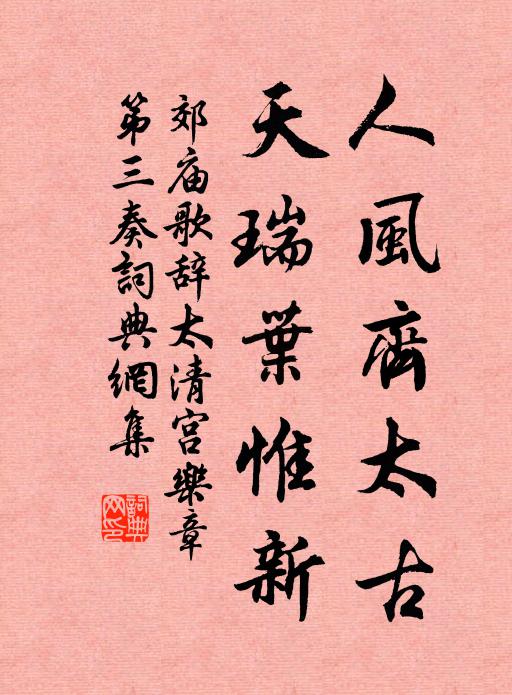 人風齊太古
天瑞葉惟新
郊庙歌辞太清宫樂章
第三奏詞典網集
詞典网印